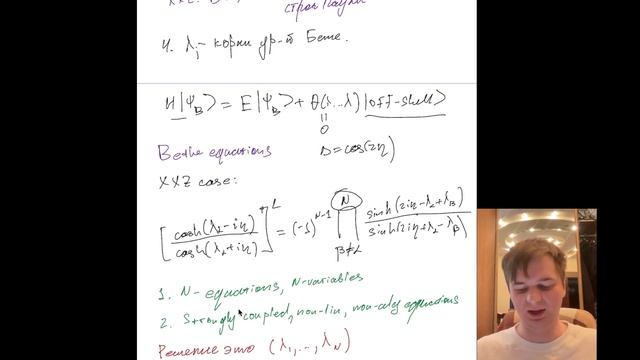 строк Паули
4. λⱼ - корни ур-й Бете.
H|Ψ_B> = E|Ψ_B> + θ(λ...λ)|off-shell>
= 0
Bethe equations Δ = cos(2η)
XXZ case:
[cosh(λ_α - iη) / cosh(λ_α + iη)]^L = (-1)^{N-1} ∏_{β≠α}^{N} sinh(2iη - λ_α + λ_β) / sinh(2iη + λ_α - λ_β)
1. N - equations, N-variables
2. Strongly coupled, non-lin, non-alg equations
Решение это (λ₁, ..., λ_N)